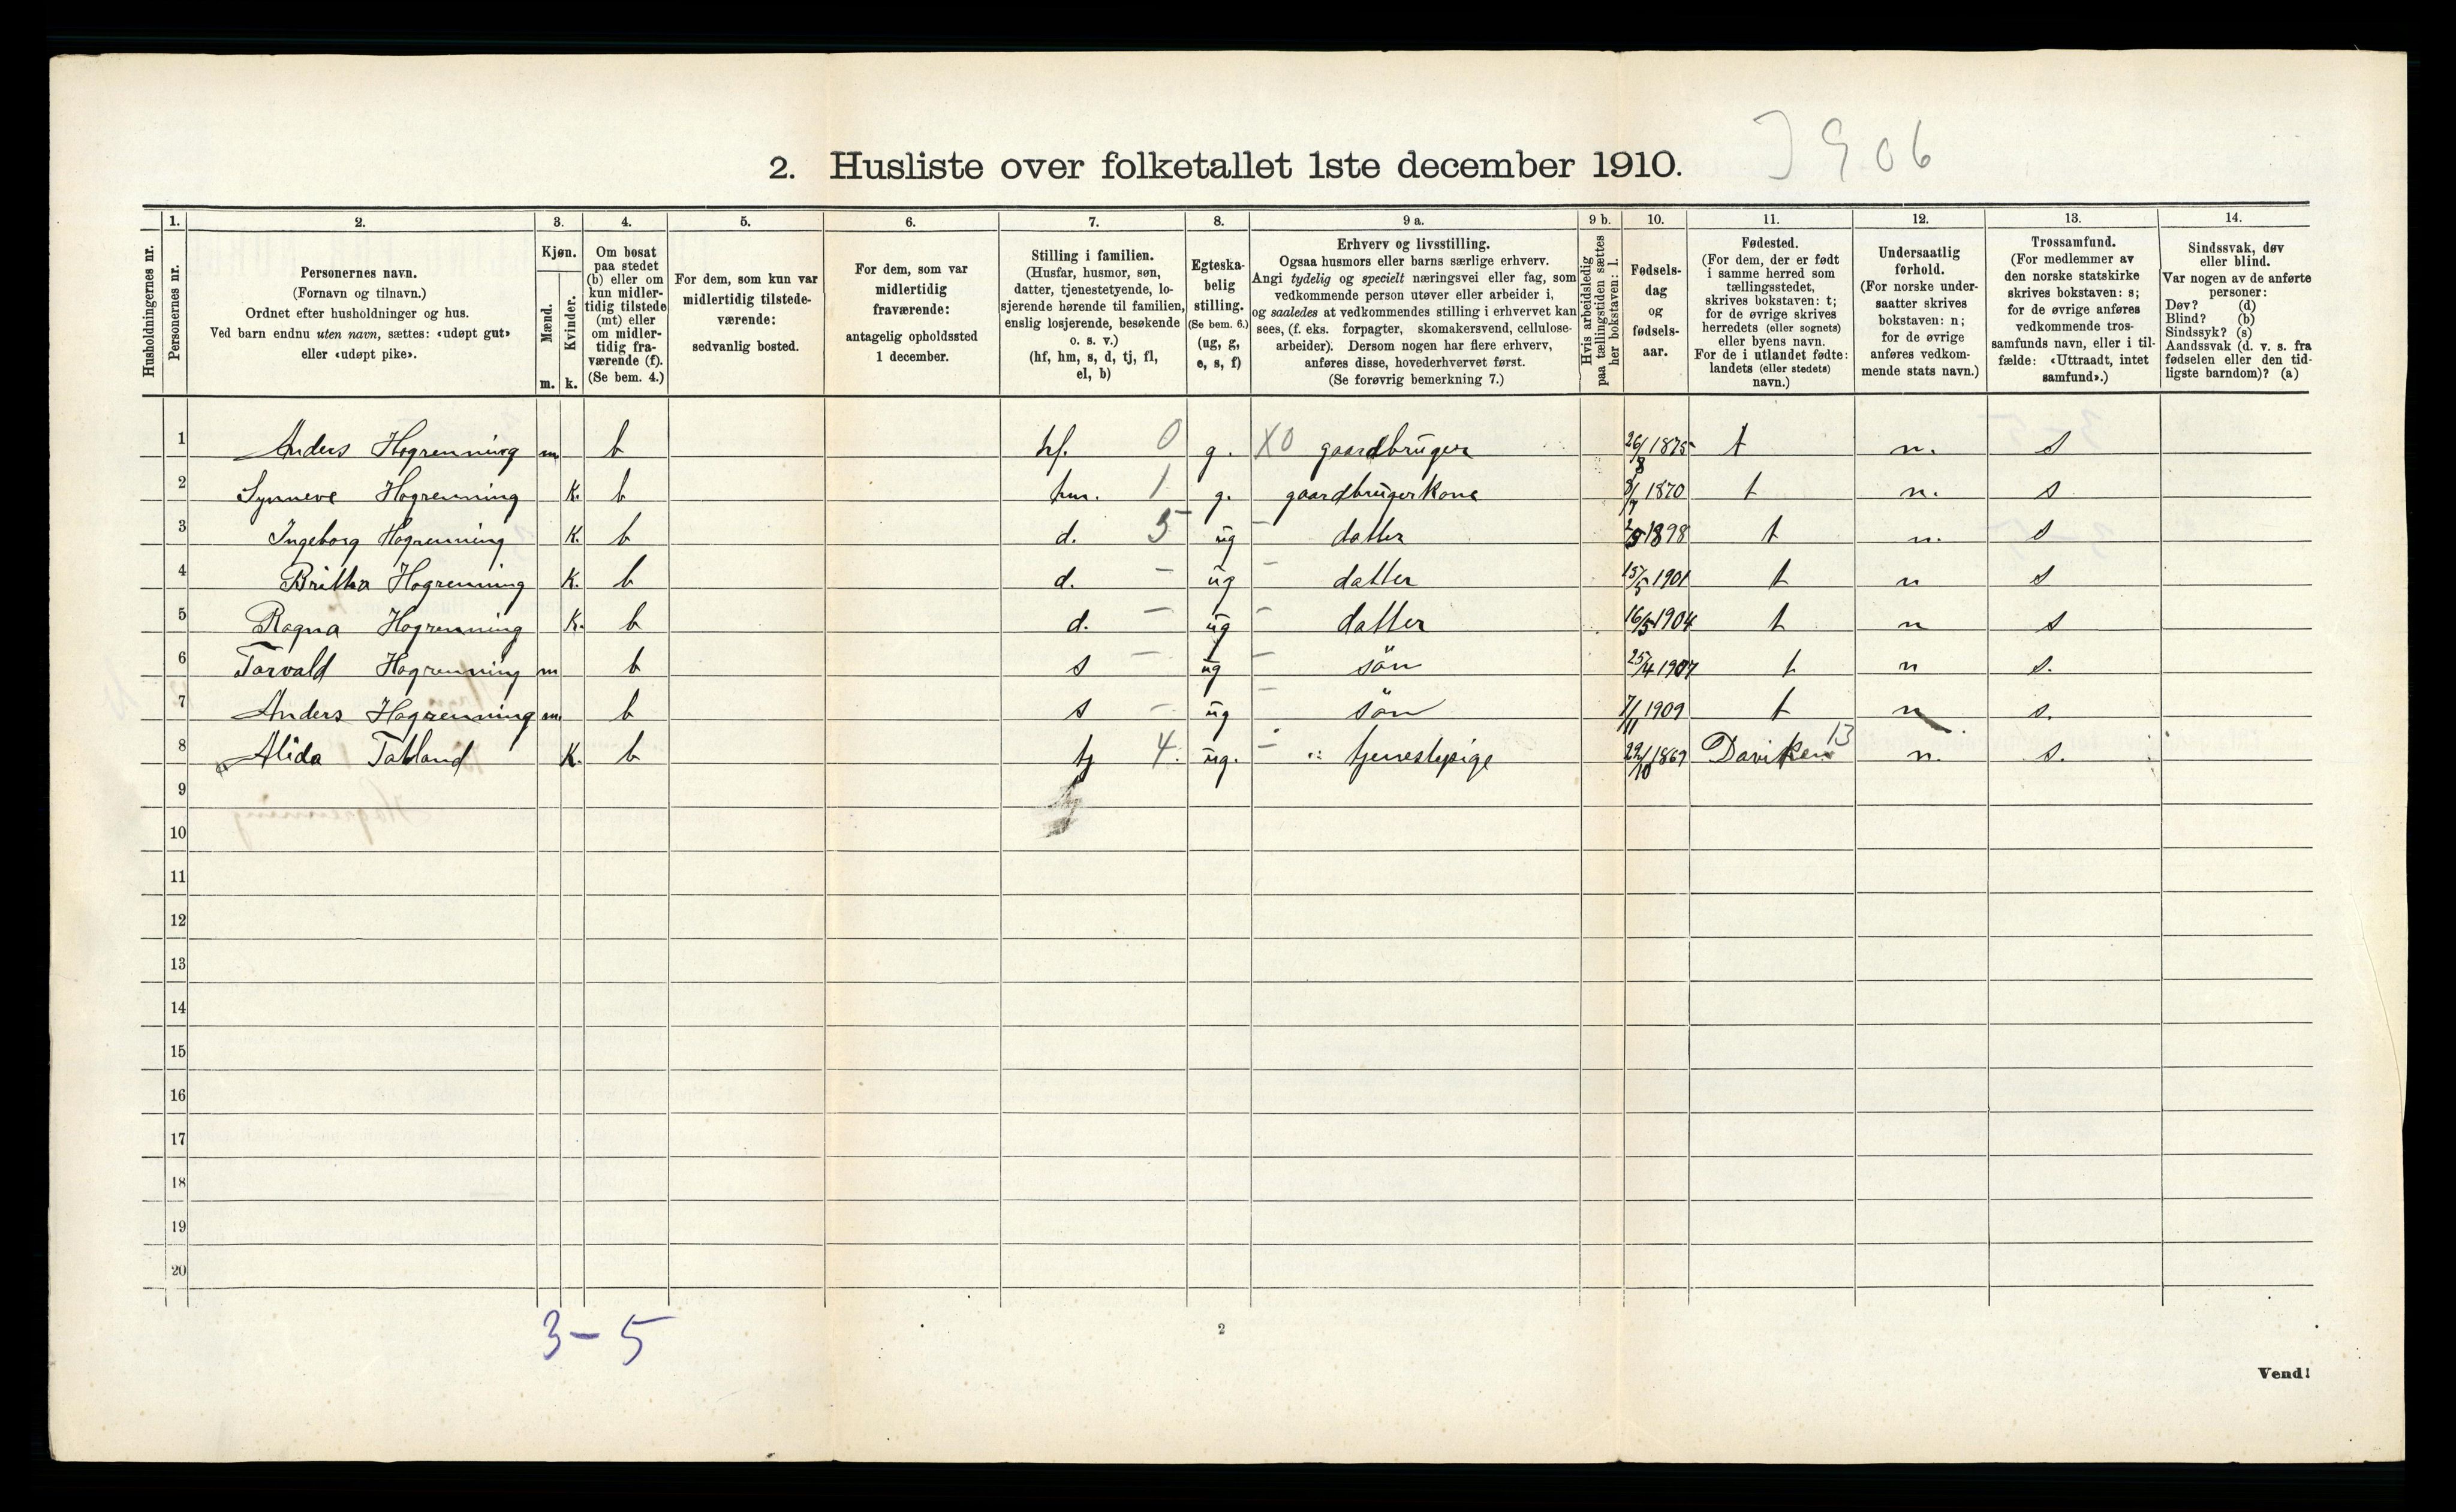 2. Husliste over folketallet 1ste december 1910.
3906
Husholdningernes nr.
1.
Personernes nr.
2.
Personernes navn.
(Fornavn og tilnavn.)
Ordnet efter husholdninger og hus.
Ved barn endnu uten navn, sættes: «udøpt gut»
eller «udøpt pike».
3.
Kjøn.
Mænd.
Kvinder.
m. k.
4.
Om bosat
paa stedet
(b) eller om
kun midler-
tidig tilstede
(mt) eller
om midler-
tidig fra-
værende (f).
(Se bem. 4.)
5.
For dem, som kun var
midlertidig tilstede-
værende:
sedvanlig bosted.
6.
For dem, som var
midlertidig
fraværende:
antagelig opholdssted
1 december.
7.
Stilling i familien.
(Husfar, husmor, søn,
datter, tjenestetyende, lo-
sjerende hørende til familien,
enslig losjerende, besøkende
o. s. v.)
(hf, hm, s, d, tj, fl,
el, b)
8.
Egteska-
belig
stilling.
(Se bem. 6.)
(ug, g,
e, s, f)
9 a.
Erhverv og livsstilling.
Ogsaa husmors eller barns særlige erhverv.
Angi tydelig og specielt næringsvei eller fag, som
vedkommende person utøver eller arbeider i,
og saaledes at vedkommendes stilling i erhvervet kan
sees, (f. eks. forpagter, skomakersvend, cellulose-
arbeider). Dersom nogen har flere erhverv,
anføres disse, hovederhvervet først.
(Se forøvrig bemerkning 7.)
9 b.
Hvis arbeidsledig
paa tællingstiden sættes
her bokstaven: l.
10.
Fødsels-
dag
og
fødsels-
aar.
11.
Fødested.
(For dem, der er født
i samme herred som
tællingsstedet,
skrives bokstaven: t;
for de øvrige skrives
herredets (eller sognets)
eller byens navn.
For de i utlandet fødte:
landets (eller stedets)
navn.)
12.
Undersaatlig
forhold.
(For norske under-
saatter skrives
bokstaven: n;
for de øvrige
anføres vedkom-
mende stats navn.)
13.
Trossamfund.
(For medlemmer av
den norske statskirke
skrives bokstaven: s;
for de øvrige anføres
vedkommende tros-
samfunds navn, eller i til-
fælde: «Uttraadt, intet
samfund».)
14.
Sindssvak, døv
eller blind.
Var nogen av de anførte
personer:
Døv? (d)
Blind? (b)
Sindssyk? (s)
Aandssvak (d. v. s. fra
fødselen eller den tid-
ligste barndom)? (a)
1 Anders Hogrenning m b hf. 0 g. X0 gaardbruger 26/8 1875 t n. s
2 Synneve Hogrenning K. b hm. 1 g. gaardbrugerkone 8/7 1870 t n. s
3 Ingeborg Hogrenning K. b d. 5 ug – datter 2/5 1898 t n. s
4 Britha Hogrenning K. b d. – ug – datter 15/5 1901 t n s
5 Ragna Hogrenning K. b d. – ug – datter 16/5 1904 t n s
6 Torvald Hogrenning m b s – ug – sön 25/4 1907 t n s.
7 Anders Hogrenning m. b s – ug – sön 7/11 1909 t n s.
8 Alida Tatland K. b tj 4. ug. – tjenestepige 29/10 1867 Daviken 13 n. s.
9
10
11
12
13
14
15
16
17
18
19
20
3 – 5
2
Vend!